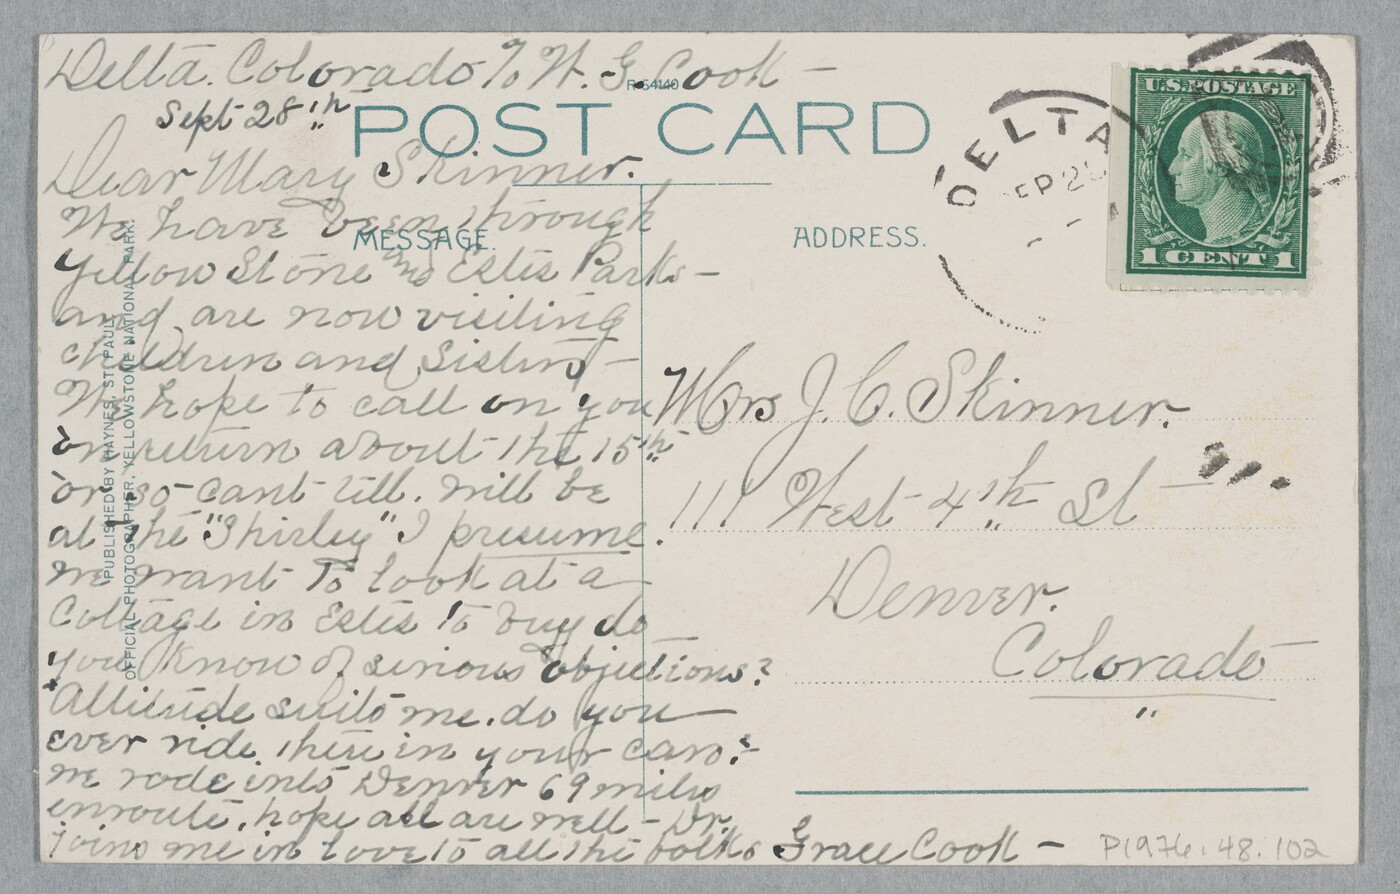 Delta. Colorado % W. G. Cook –
Sept 28th
R-54140
POST CARD
Dear Mary Skinner.
We have been through
Yellow Stone and Estis Parks –
and are now visiting
children and Sisters –
We hope to call on you
on return about the 15th
or so – cant till. Will be
at the "Shirley" I presume.
we want to look at a
Cottage in Estis to buy do
you know of serious objections?
Altitude suits me. do you
ever ride there in your cars?
we rode into Denver 69 miles
enroute. hope all are well – Dr.
joins me in love to all the folks
Grace Cook –
MESSAGE.
ADDRESS.
PUBLISHED BY HAYNES, ST. PAUL
OFFICIAL PHOTOGRAPHER, YELLOWSTONE NATIONAL PARK.
DELTA
SEP 2
U.S. POSTAGE
1 CENT 1
Mrs J. C. Skinner.
111 West 4th St
Denver.
Colorado
P1976.48.102